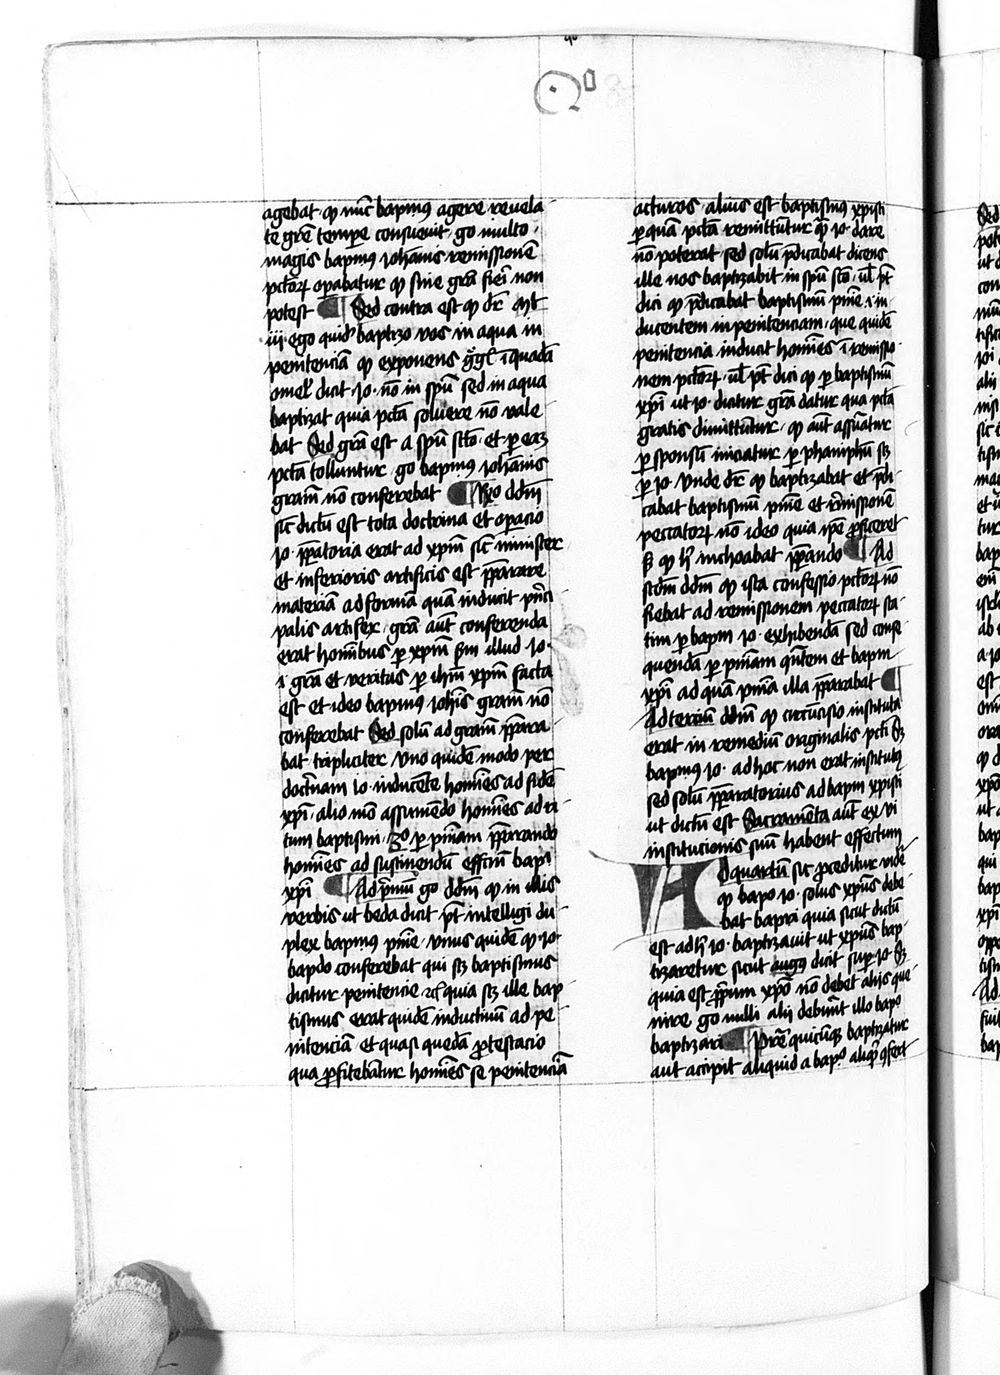 Qo
agebat · qͥ nūc bapmꝰ agere · revela
te grē tempe consuevit · go multo ·
magis bapmꝰ ioh̄anis remissionē
pctoꝝ opabatur qͥ sine grā fieri non
potest ¶ Sed contra est qͥ dr̄ mt
iii · ego quid̄ baptizo vos in aqua in
penitenciā qͥ exponens ḡgͥ ī quadā
omel dicit · io · nō in spū sed in aqua
baptizat quia pctā solvere nō vale
bat Sed grā est a spū scō · et ꝑ eaꝫ
pctā tolluntur · go bapmꝰ ioh̄anis
gram nō conferebat ¶ Rͦo ddm̄
sic dictū est tota doctrina et opacio
io · p̄paratoria erat ad xpm̄ sic minister
et inferioris artificis est p̄parare
materiā ad formā quā inducit pn̄ci
palis artifex · grā aut̄ conferenda
erat hominibus ꝑ xpm̄ scdm illud io ·
i grā et veritas ꝑ ihm̄ xpm̄ facta
est et ideo bapmꝰ ioh̄is gram nō
conferebat Sed solū ad gram p̄para
bat · tripliciter uno quidē modo per
doctnam io · inducētē homīes ad fidē
xpi · alio mō assuescēdo homīes ad ri
tum baptismi · 3o ꝑ pn̄iam p̄parando
homīes ad sustinendū effcm̄ bapi
xpi ¶ Ad p̄mū go ddm̄ qͥ in illis
verbis ut beda dicit p̄t intelligi du
plex bapmꝰ pn̄ie · unus quidē qͥ · io ·
bapdo conferebat qui scꝫ baptismus
dicitur penitencie ⁊cͥ quia scꝫ ille bap
tismus erat quidē inductivū ad pe
nitenciā et quasi quedā ꝓtestacio
qua ꝓfitebātur homīes se penitenciā
acturos · alius est baptismꝰ xpisti
ꝑ quā pctā remittūtur qͣ io · dare
nō poterat sed solū p̄dicabat dicens
ille vos baptizabit in spū scō · ul p̄t
dici qͥ p̄dicabat baptismū pn̄ie · i in
ducentem in penitenciam · que quidē
penitencia inducit homīes ī remissio
nem pctoꝝ · ul p̄t dici qͥ ꝑ baptismū
xpi ut io · dicitur grā datur qua pctā
gratis dimittūtur · qͥ aut̄
ꝑ sponsū iniciatur ꝑ scꝫ
ꝑ io · Unde dr̄ qͥ baptizabat et p̄di
cabat baptismū pn̄ie et īremissionē
peccatoꝝ nō ideo quia ipe ꝑficeret
ꝫ qͥ hͨ inchoabat p̄pando ¶ Ad
scdm̄ ddm̄ qͥ ista confessio pctoꝝ nō
fiebat ad remissionem peccatoꝝ sta
tim ꝑ bapm̄ io · exhibendā sed cōse
quendā ꝑ pn̄iam et bapm̄
xpi ad quā pn̄ia illa p̄parabat ¶
Ad terciū ddm̄ qͥ circūcisio instituta
erat in remediū originalis pcti Sꝫ
bapmꝰ io · ad hoc non erat institutꝰ
sed solū p̄paratorius ad bapm̄ xpisti
ut dictū est Sacramēta aut̄ ex vi
institucionis suū habent effectum
AD quartū sic ꝓceditur vid̄e
qͥ bapo io · solus xpūs debe
bat bapȥari quia sicut dictū
est ad hͨ io · baptizavit ut xpūs bap
tizaretur sicut augꝰ dicit suꝑ io · Sꝫ
quia est p̄prium xpō nō debet aliis que
nire go nulli alii debūnt illo bapo
baptizari ¶ Pret̄ quicūqꝫ baptizatur
aut accipit aliquid a bapo aliqͥ ꝯfert